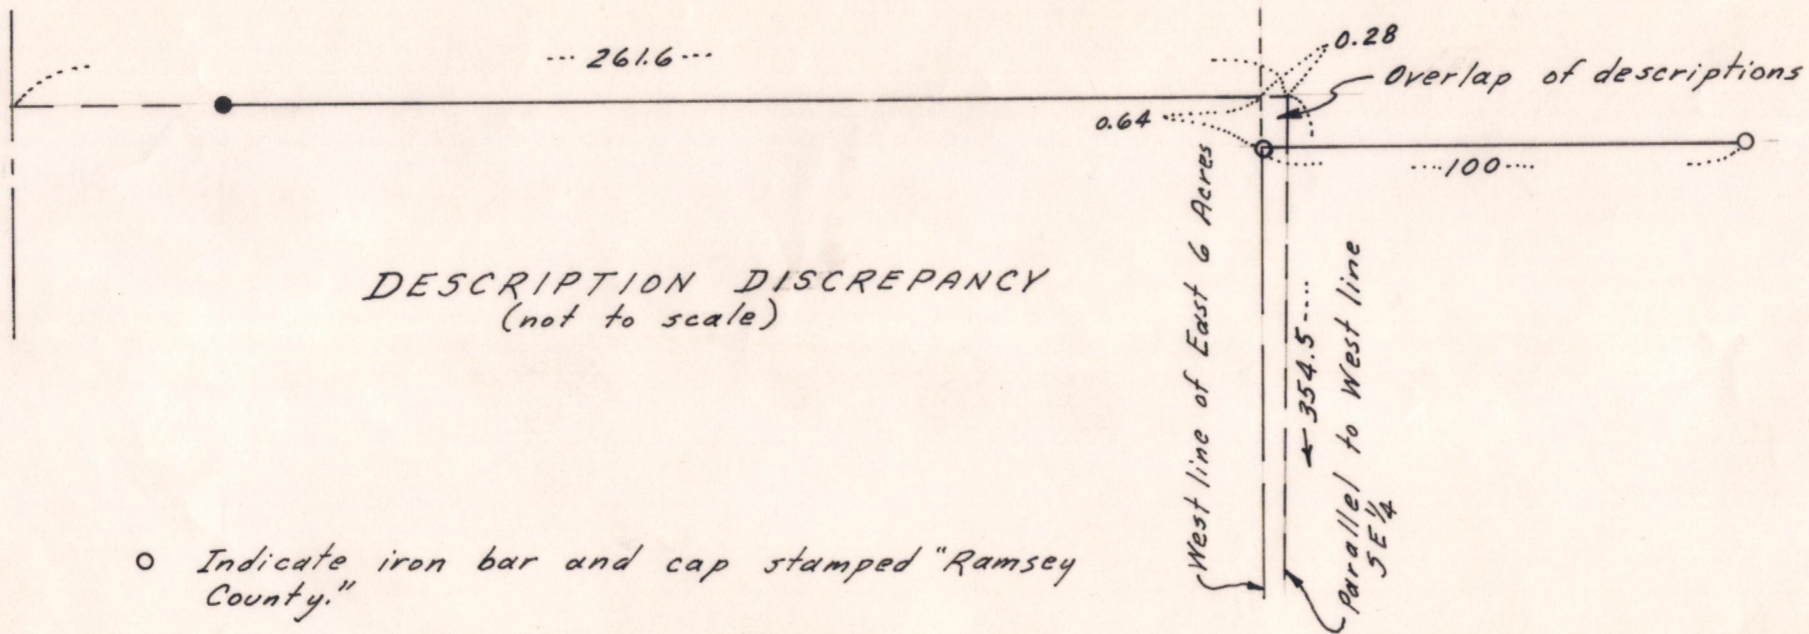 --- 261.6 ---
0.28
Overlap of descriptions
0.64
---100---
DESCRIPTION DISCREPANCY
(not to scale)
West line of East 6 Acres
354.5 ----
Parallel to West line
SE 1/4
o Indicate iron bar and cap stamped "Ramsey
County."